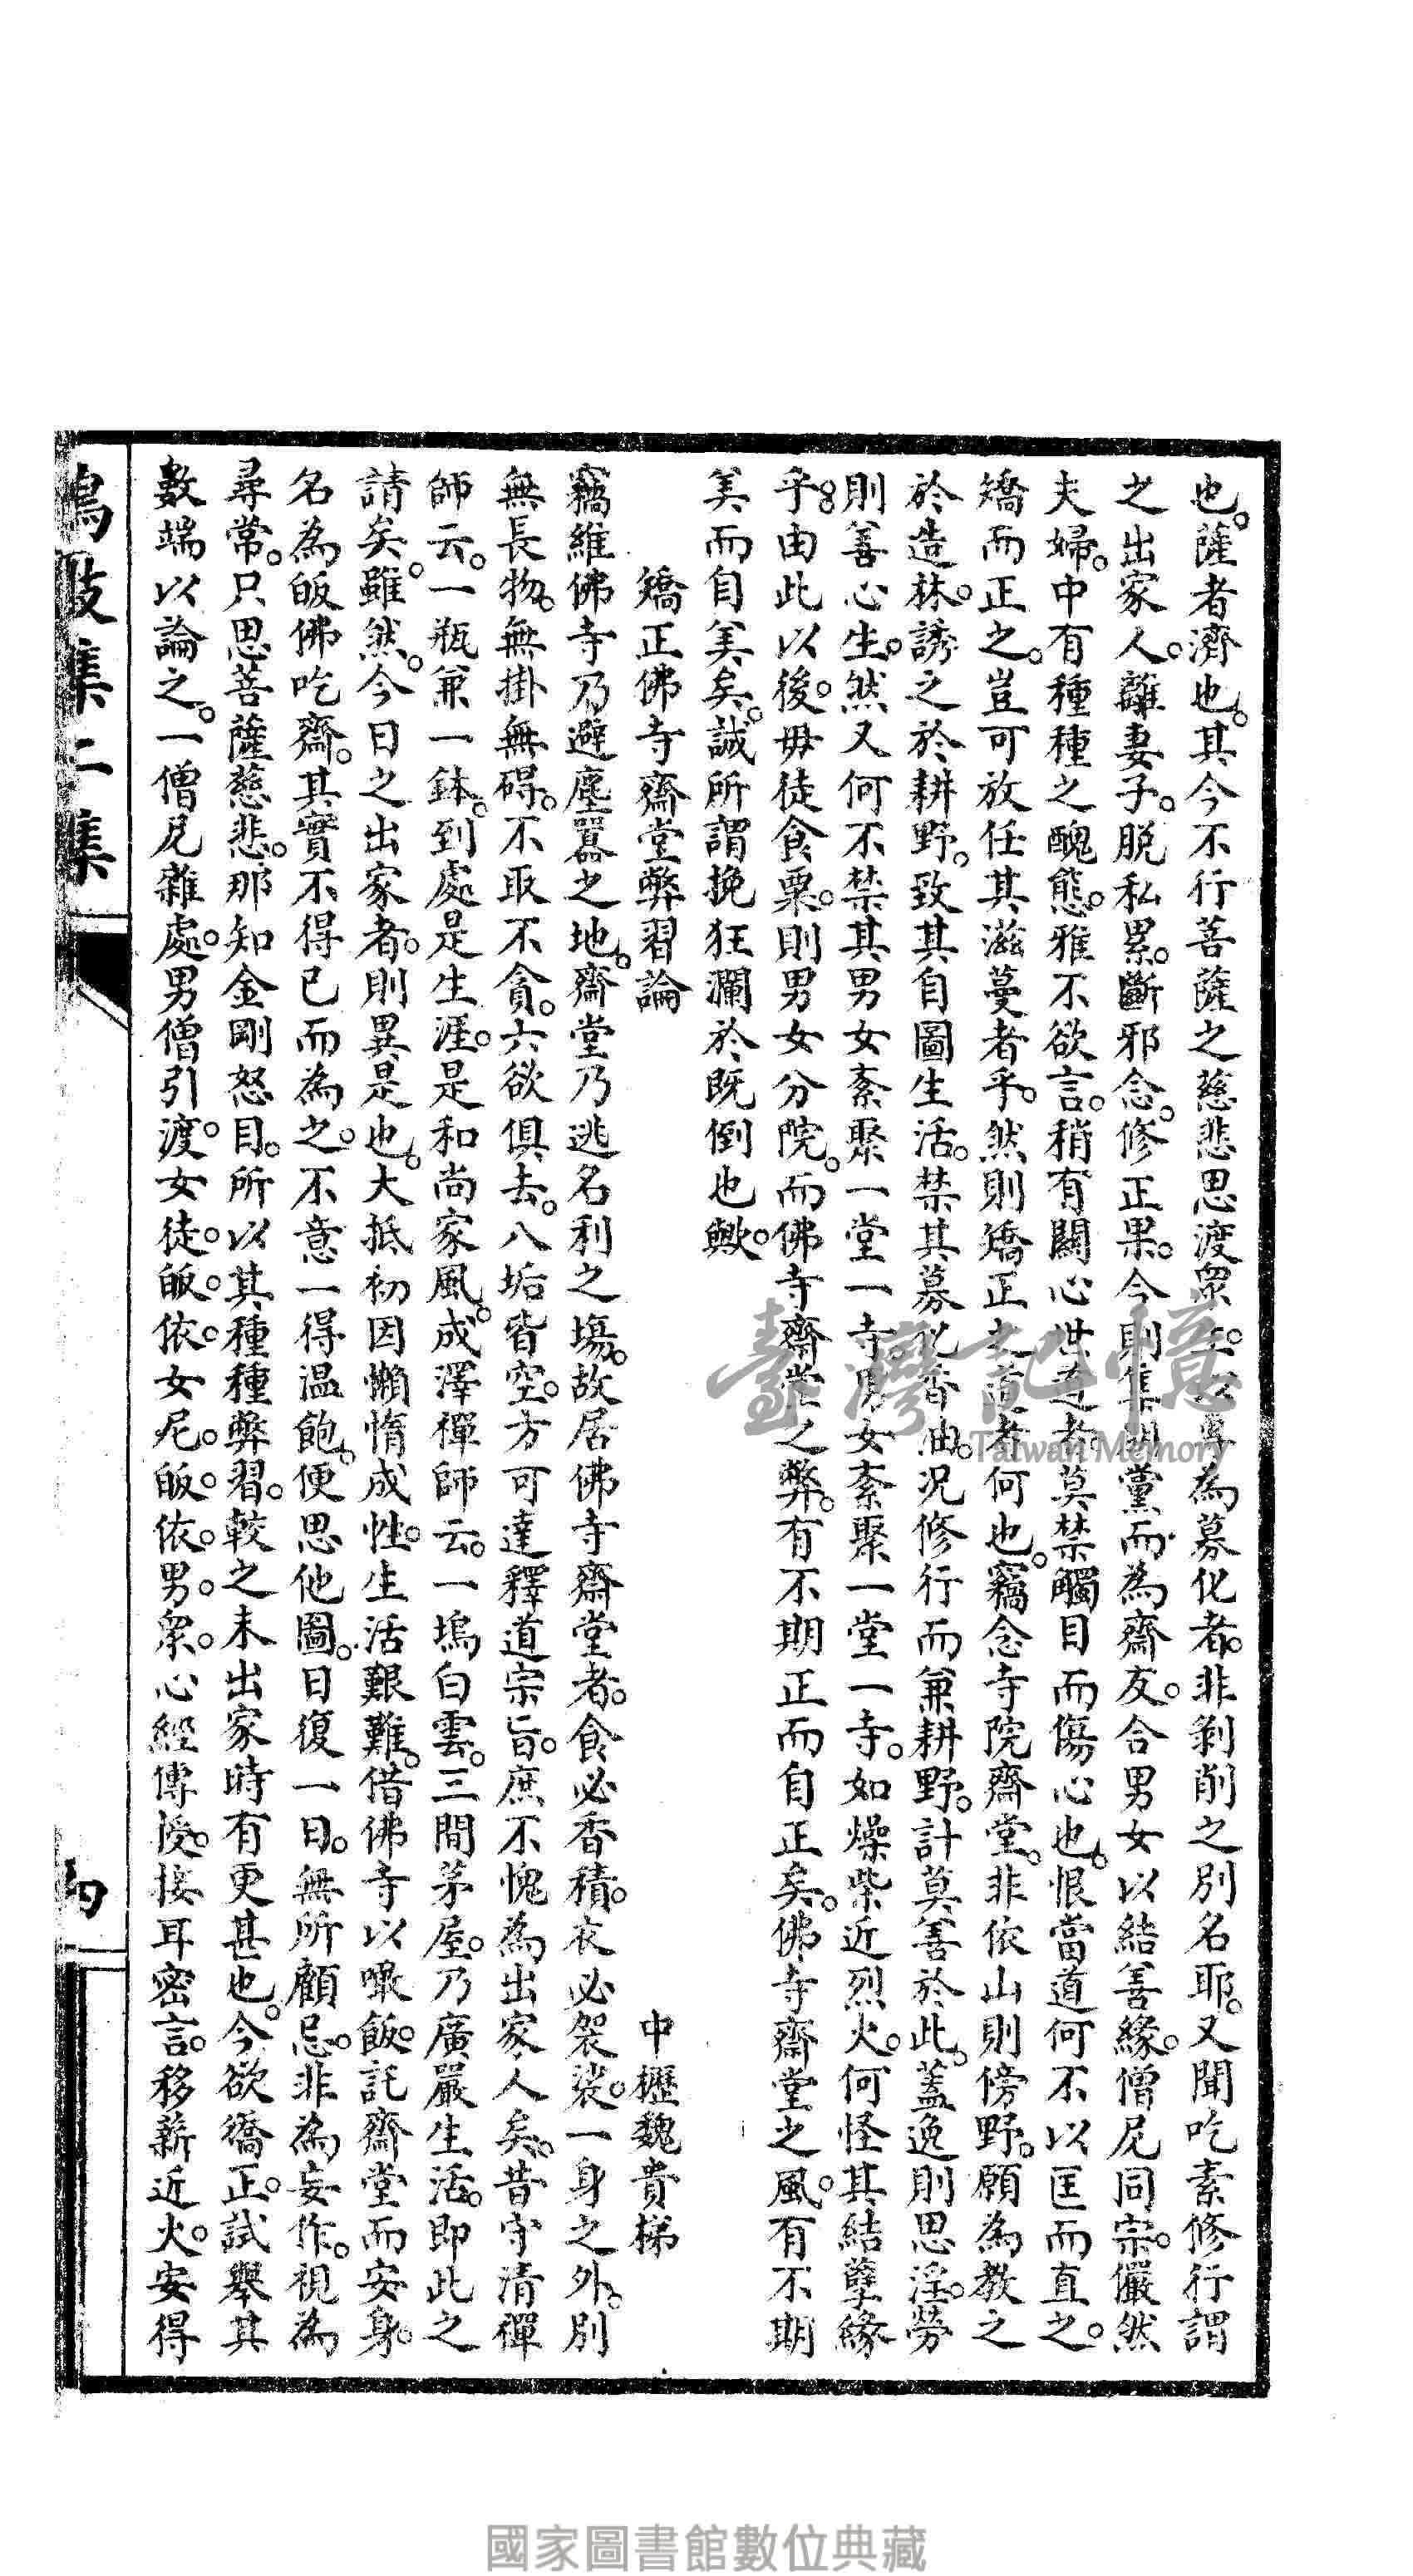 也。薩者濟也。其今不行菩薩之慈悲思渡眾生。以專為募化者。非剝削之別名耶。又聞吃素修行謂
之出家人。離妻子。脫私累。斷邪念。修正果。今則集朋黨而為齋友。合男女以結善緣。僧尼同宗。儼然
夫婦。中有種種之醜態。雅不欲言。稍有關心世道者。莫禁觸目而傷心也。恨當道何不以匡而直之。
矯而正之。豈可放任其滋蔓者乎。然則矯正之道者何也。竊念寺院齋堂。非依山則傍野。願為教之
於造林。誘之於耕野。致其自圖生活。禁其募化香油。况修行而兼耕野。計莫善於此。蓋逸則思淫。勞
則善心生。然又何不禁其男女紊聚一堂一寺。男女紊聚一堂一寺。如燥柴近烈火。何怪其結孽緣
乎。由此以後。毋徒食粟。則男女分院。而佛寺齋堂之弊。有不期正而自正矣。佛寺齋堂之風。有不期
美而自美矣。誠所謂挽狂瀾於既倒也歟。
矯正佛寺齋堂弊習論
中壢魏貴梯
竊維佛寺乃避塵囂之地。齋堂乃逃名利之塲。故居佛寺齋堂者。食必香積。衣必袈裟。一身之外。別
無長物。無掛無碍。不取不貪。六欲俱去。八垢皆空。方可達釋道宗旨。庶不愧為出家人矣。昔守清禪
師云。一瓶兼一鉢。到處是生涯。是和尚家風。成澤禪師云。一塢白雲。三間茅屋。乃廣嚴生活。即此之
請矣。雖然。今日之出家者。則異是也。大抵初因懶惰成性。生活艱難。借佛寺以噉飯。託齋堂而安身。
名為皈佛吃齋。其實不得已而為之。不意一得温飽。便思他圖。日復一日。無所顧忌。非為妄作。視為
尋常。只思菩薩慈悲。那知金剛怒目。所以其種種弊習。較之未出家時有更甚也。今欲矯正。試舉其
數端以論之。一僧尼雜處。男僧引渡。女徒。皈。依。女尼。皈。依。男。眾。心經傳授。接耳密言。移薪近火。安得
鳴鼓集二集
四
臺灣記憶
Taiwan Memory
國家圖書館數位典藏